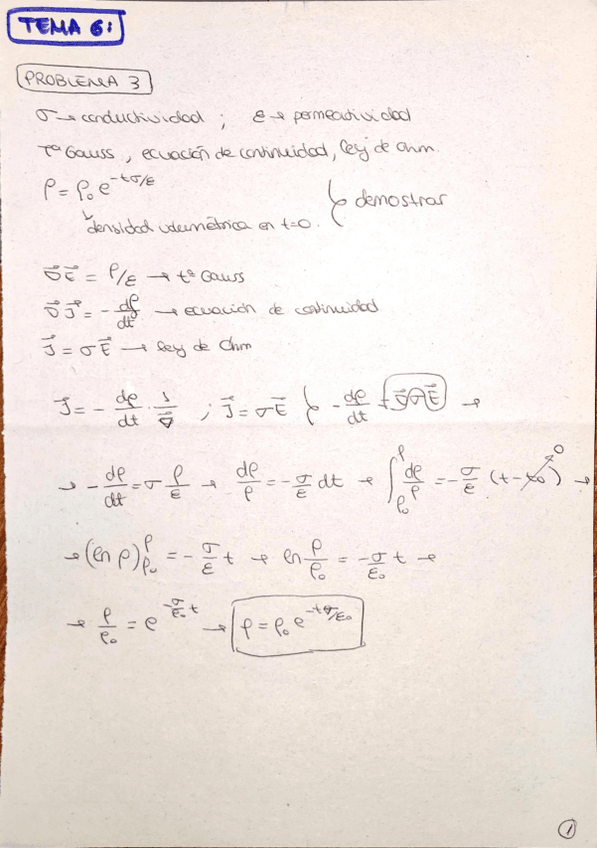 TEMA 6:
PROBLEMA 3
σ → conductividad ; ε → permeatividad
Tª Gauss , ecuación de continuidad, ley de Ohm.
ρ = ρ₀ e^(-tσ/ε) } demostrar
densidad volumétrica en t=0.
∇⃗E⃗ = ρ/ε → tª Gauss
∇⃗J⃗ = - dρ/dt → ecuación de continuidad
J⃗ = σE⃗ → ley de Ohm
J⃗ = - dρ/dt · 1/∇⃗ ; J⃗ = σE⃗ } - dρ/dt = ∇⃗σE⃗ →
→ - dρ/dt = σ ρ/ε → dρ/ρ = - σ/ε dt → ∫_ρ₀^ρ dρ/ρ = - σ/ε (t - t₀) 0 →
→ (ln ρ)_ρ₀^ρ = - σ/ε t → ln ρ/ρ₀ = - σ/ε₀ t →
→ ρ/ρ₀ = e^(-σ/ε₀ t) → ρ = ρ₀ e^(-tσ/ε₀)
1